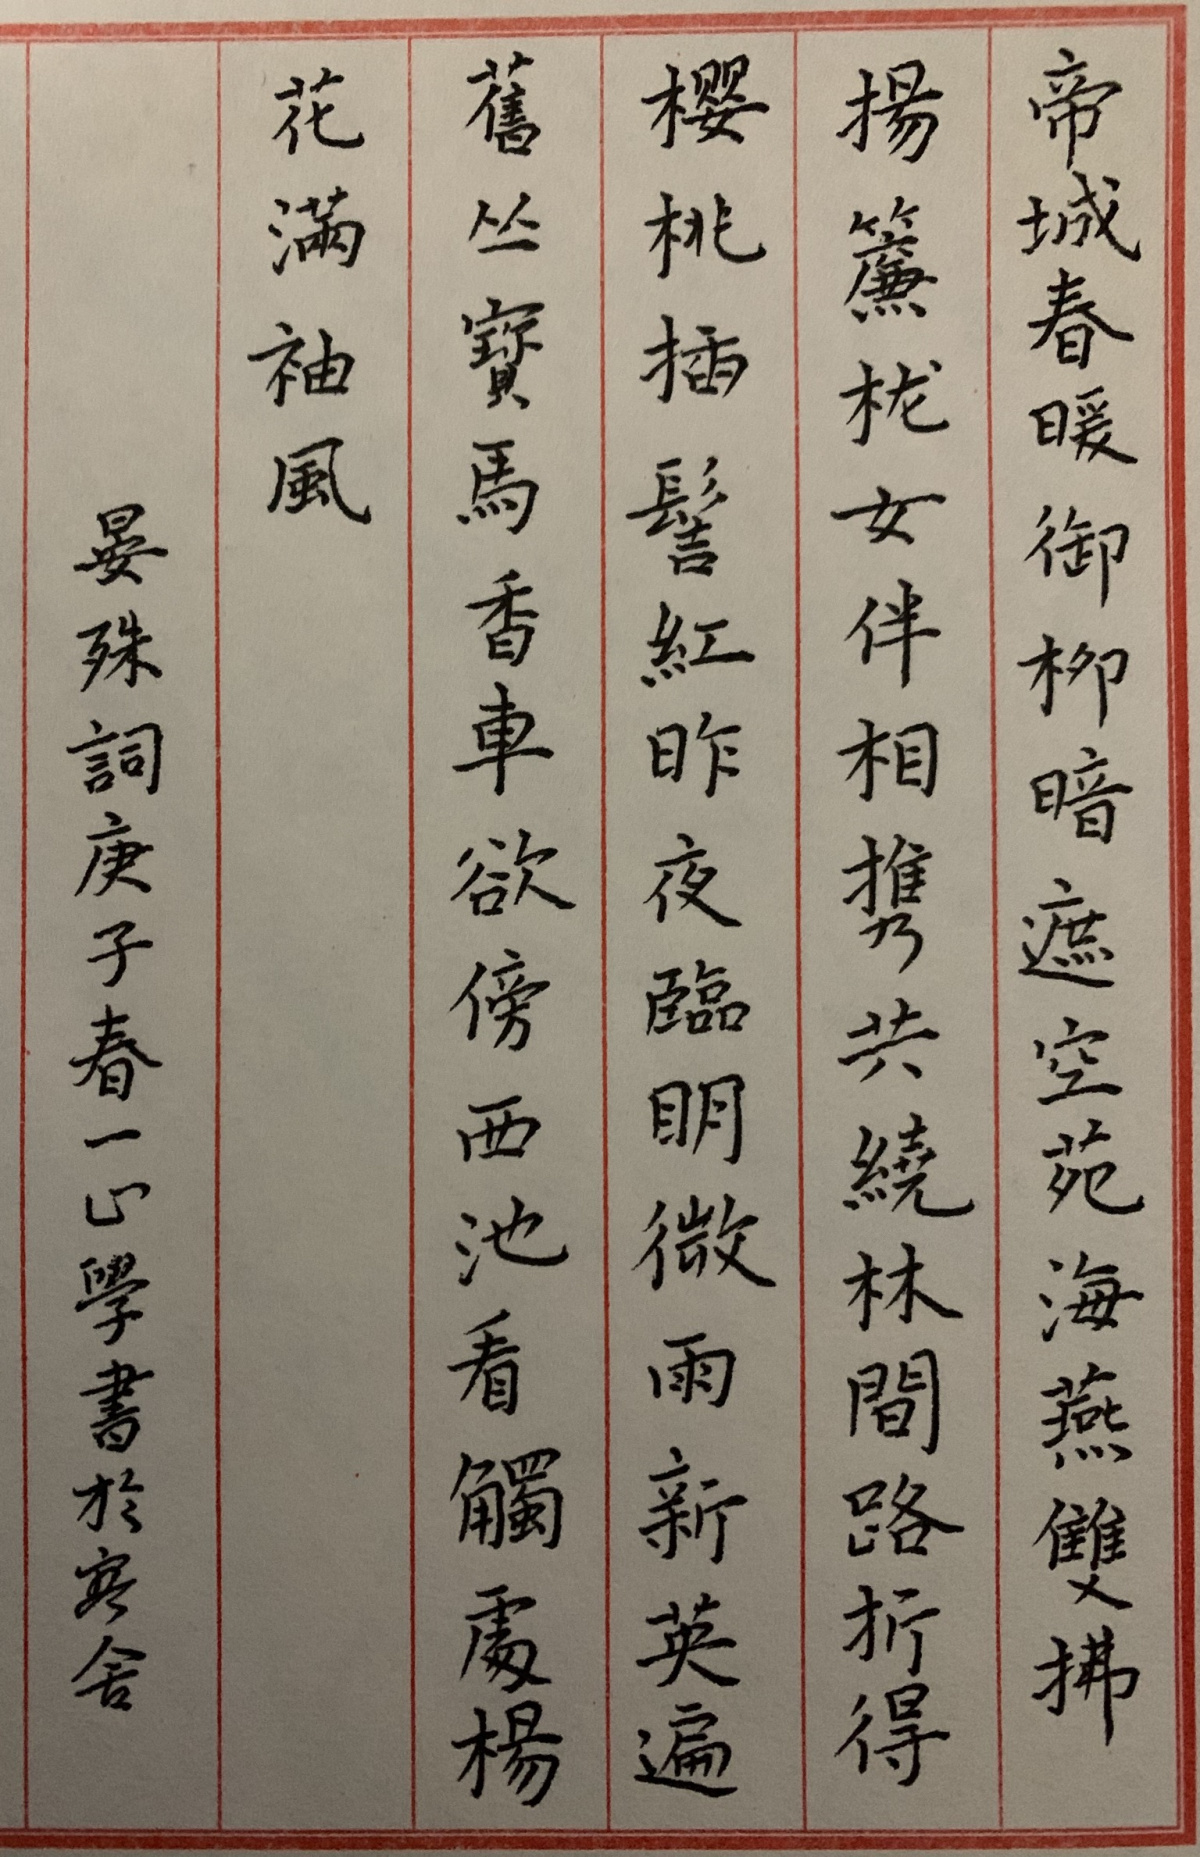 帝城春暖御柳暗遮空苑海燕雙拂
揚簾栊女伴相攜共繞林間路折得
櫻桃插髻紅昨夜臨明微雨新英遍
舊丛寶馬香車欲傍西池看觸處楊
花滿袖風
晏殊詞庚子春一心學書於寒舍